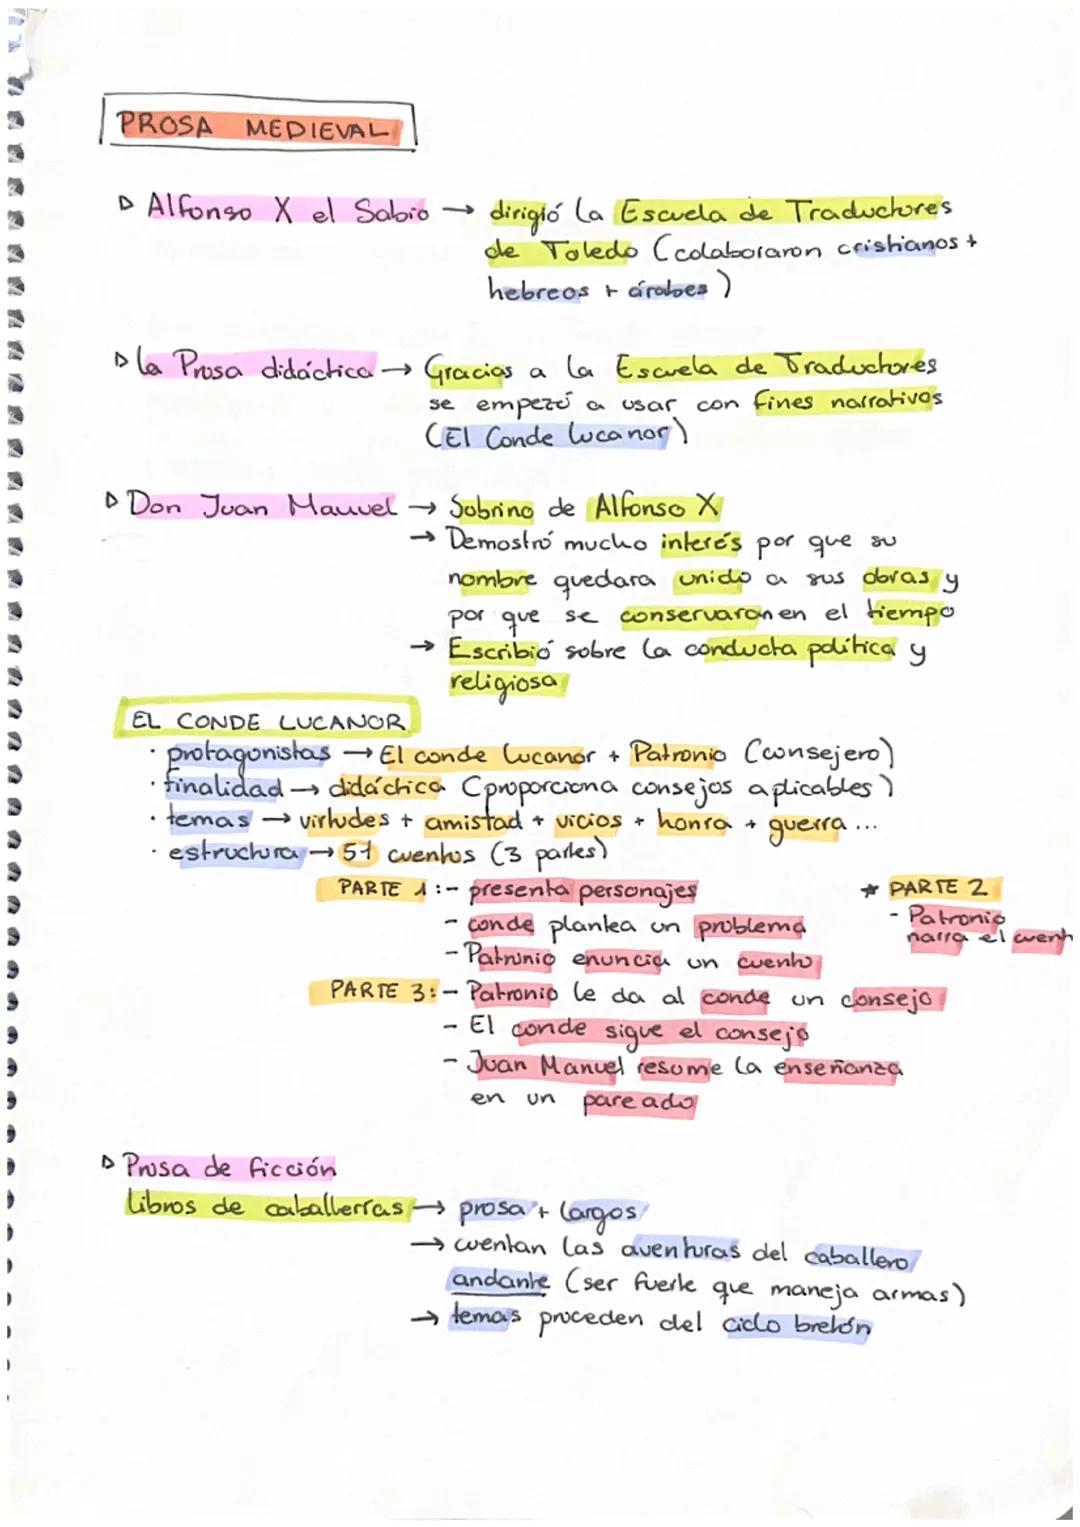 PROSA MEDIEVAL
▷ Alfonso X el Sabio → dirigió la Escuela de Traductores
de Toledo (colaboraron cristianos +
hebreos + árabes)
▷ La Prosa didáctica → Gracias a la Escuela de Traductores
se empezó a usar con fines narrativos
(El Conde Lucanor)
▷ Don Juan Manuel → Sobrino de Alfonso X
→ Demostró mucho interés por que su
nombre quedara unido a sus obras y
por que se conservaran en el tiempo
→ Escribió sobre la conducta política y
religiosa
EL CONDE LUCANOR
· protagonistas → El conde Lucanor + Patronio (consejero)
· finalidad → didáctica (proporciona consejos aplicables)
· temas → virtudes + amistad + vicios + honra + guerra ...
· estructura → 51 cuentos (3 partes)
PARTE 1: - presenta personajes
- conde plantea un problema
- Patronio enuncia un cuento
* PARTE 2
- Patronio
narra el cuent
PARTE 3: - Patronio le da al conde un consejo
- El conde sigue el consejo
- Juan Manuel resume la enseñanza
en un pareado
▷ Prosa de ficción
Libros de caballerías → prosa + largos
→ cuentan las aventuras del caballero
andante (ser fuerte que maneja armas)
→ temas proceden del ciclo bretón